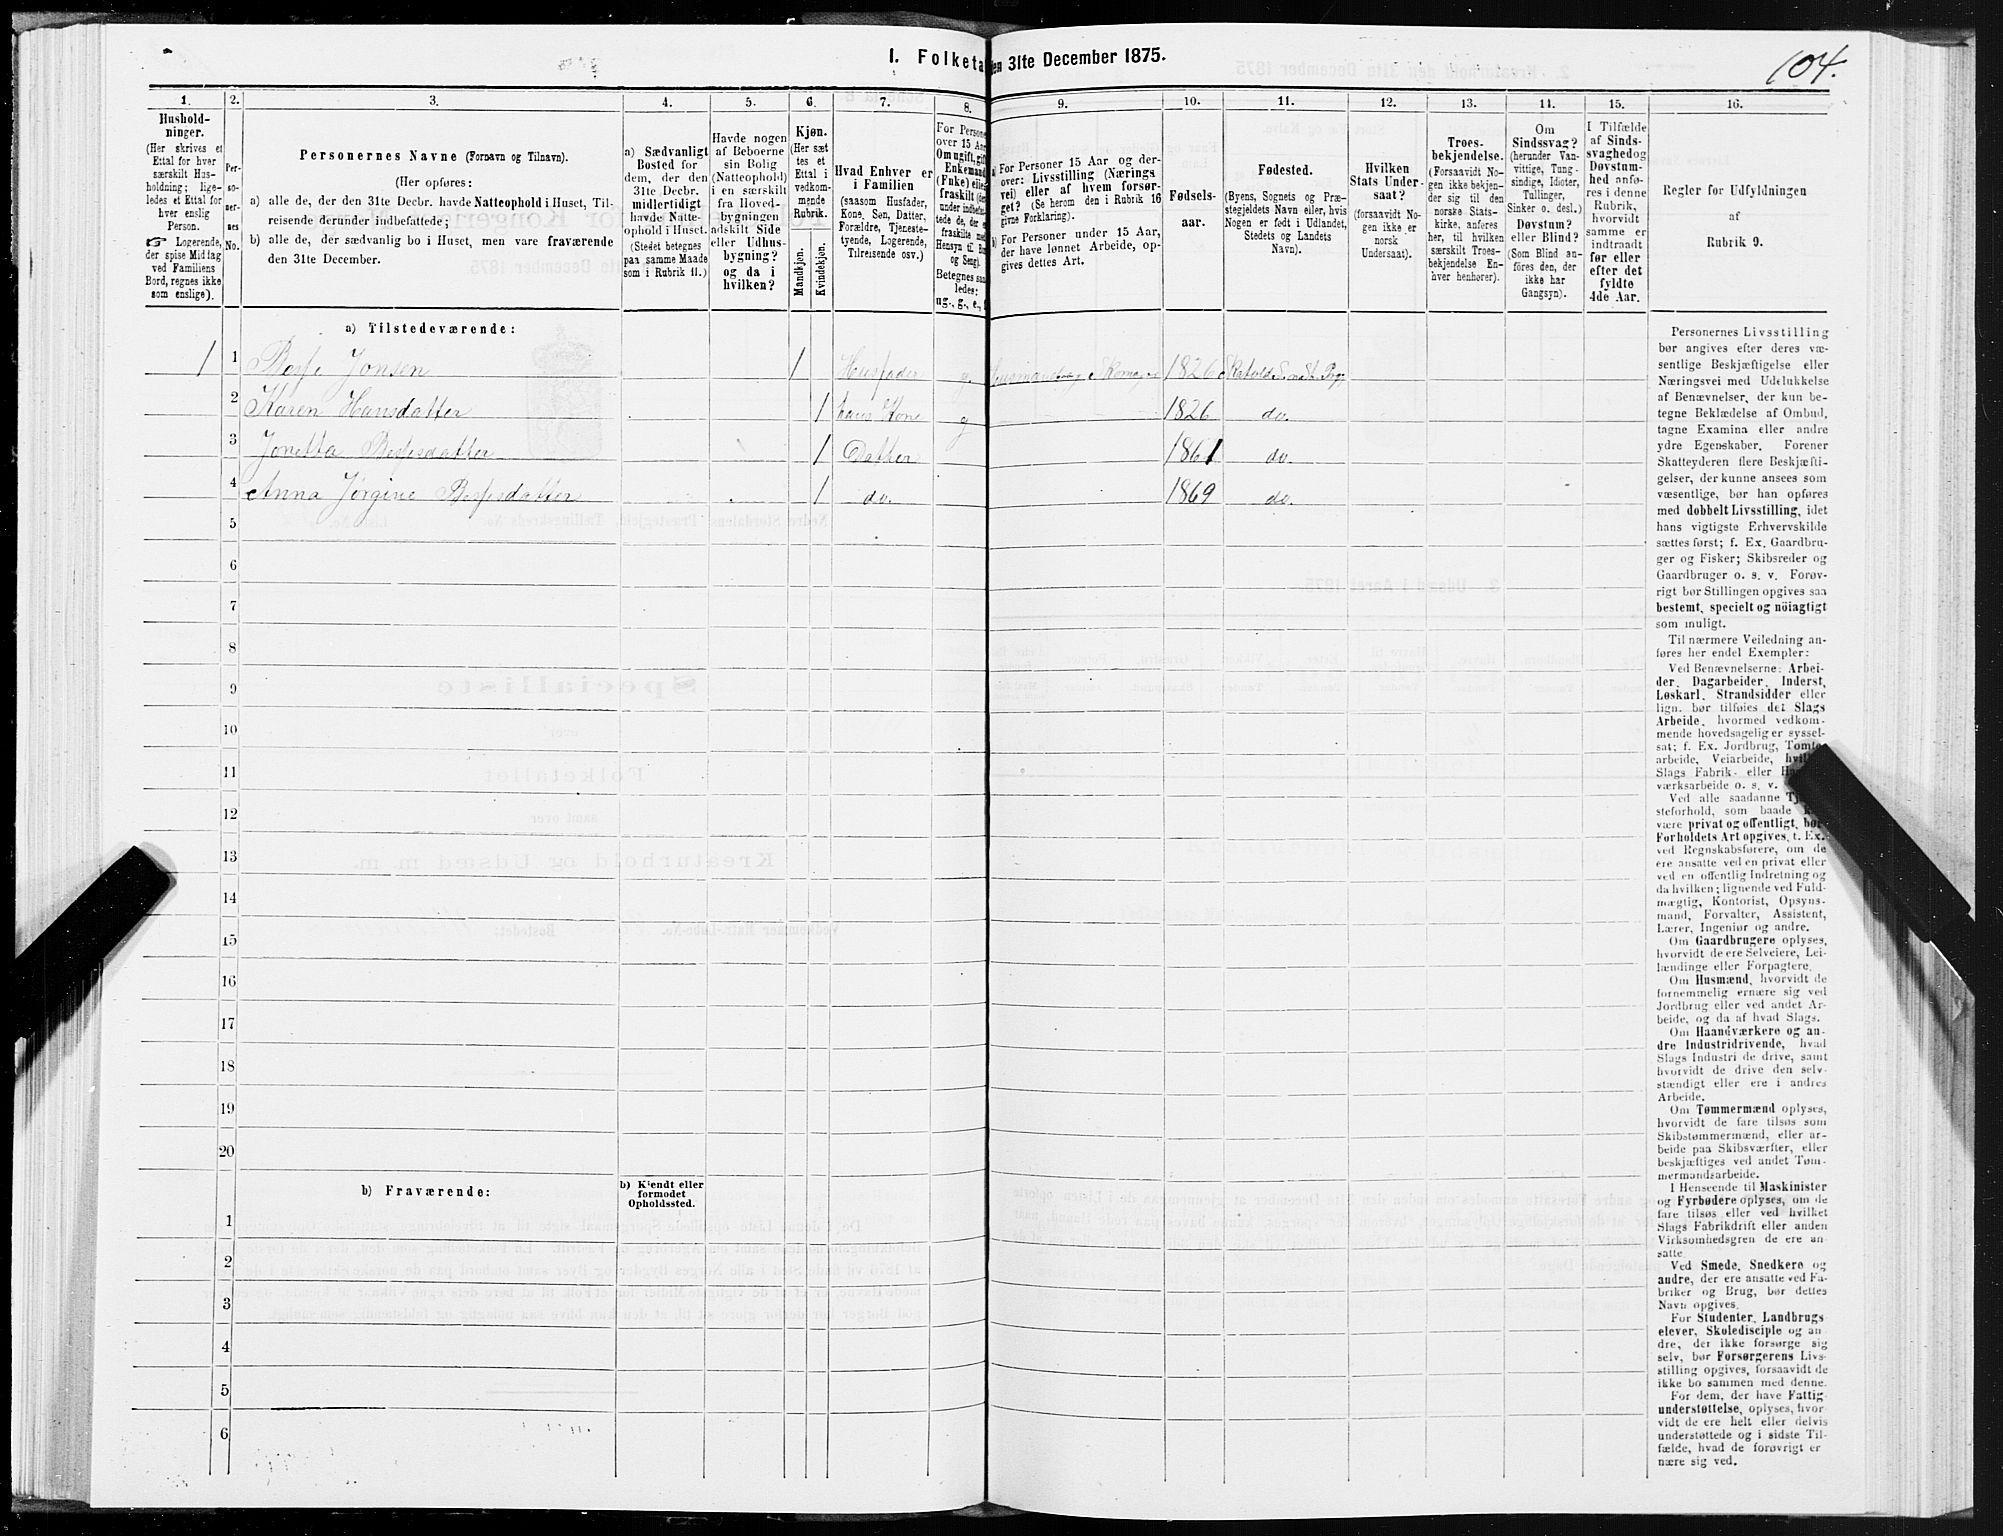 1. Folketa en 31te December 1875.
104.
1. 2. 3. 4. 5. 6. 7. 8. 9. 10. 11. 12. 13. 14. 15. 16.
Hushold-
ninger.
(Her skrives et
Ettal for hver
særskilt Hus-
holdning; lige-
ledes et Ettal for
hver enslig
Person.
☞ Logerende,
der spise Middag
ved Familiens
Bord, regnes ikke
som enslige).
Per-
so-
ner-
nes
No.
Personernes Navne (Fornavn og Tilnavn).
(Her opføres:
a) alle de, der den 31te Decbr. havde Natteophold i Huset, Til-
reisende derunder indbefattede;
b) alle de, der sædvanlig bo i Huset, men vare fraværende
den 31te December.
a) Sædvanligt
Bosted for
dem, der den
31te Decbr.
midlertidigt
havde Natte-
ophold i Huset.
(Stedet betegnes
paa samme Maade
som i Rubrik 11.)
Havde nogen
af Beboerne
sin Bolig
(Natteophold)
i en særskilt
fra Hoved-
bygningen
adskilt Side
eller Udhus-
bygning?
og da i
hvilken?
Kjøn.
(Her sæt
tes et
Ettal i
vedkom-
mende
Rubrik.
Mandkjøn.
Kvindekjøn.
Hvad Enhver er
i Familien
(saasom Husfader,
Kone, Søn, Datter,
Forældre, Tjeneste-
tyende, Logerende,
Tilreisende osv.).
For Persone
over 15 Aar
Om ugift, gift
Enkemand
(Enke) elle
fraskilt (der
under indbefat-
tede de, der e
fraskilte med
Hensyn til Bo
og Seng).
Betegnes saa
ledes:
ug., g., e., f
a) For Personer 15 Aar og der-
over: Livsstilling (Nærings
vei) eller af hvem forsør-
get? (Se herom den i Rubrik 16
givne Forklaring).
b) For Personer under 15 Aar,
der have lønnet Arbeide, op-
gives dettes Art.
Fødsels-
aar.
Fødested.
(Byens, Sognets og Præ-
stegjeldets Navn eller, hvis
Nogen er født i Udlandet,
Stedets og Landets
Navn).
Hvilken
Stats Under-
saat?
(forsaavidt No-
gen ikke er
norsk
Undersaat).
Troes-
bekjendelse.
(Forsaavidt No-
gen ikke bekjen-
der sig til den
norske Stats-
kirke, anføres
her, til hvilken
særskilt Troes-
bekjendelse En-
hver henhører).
Om
Sindssvag?
(herunder Van-
vittige, Tung-
sindige, Idioter,
Tullinger,
Sinker o. desl.)
Døvstum?
eller Blind?
(Som Blind an-
føres den, der
ikke har
Gangsyn).
I Tilfælde
af Sinds-
svaghed og
Døvstum-
hed anfø-
res i denne
Rubrik,
hvorvidt
samme er
indtraadt
før eller
efter det
fyldte
4de Aar.
Regler for Udfyldningen
af
Rubrik 9.
a) Tilstedeværende:
1 1 Jonsen 1 Husfader g. Skomager 1826
2 Karen Hansdatter 1 hans Kone g 1826 do.
3 Jonetta 1 Datter 1861 do.
4 Anna Jørgine 1 do. 1869 do.
5
6
7
8
9
10
11
12
13
14
15
16
17
18
19
20
b) Fraværende:
b) Kjendt eller
formodet
Opholdssted.
1
2
3
4
5
6
Personernes Livsstilling
bør angives efter deres væ-
sentlige Beskjæftigelse eller
Næringsvei med Udelukkelse
af Benævnelser, der kun be-
tegne Beklædelse af Ombud,
tagne Examina eller andre
ydre Egenskaber. Forener
Skatteyderen flere Beskjæfti-
gelser, der kunne ansees som
væsentlige, bør han opføres
med dobbelt Livsstilling, idet
hans vigtigste Erhvervskilde
sættes først; f. Ex. Gaardbru-
ger og Fisker; Skibsreder og
Gaardbruger o. s. v. Forøv-
rigt bør Stillingen opgives saa
bestemt, specielt og nöiagtigt
som muligt.
Til nærmere Veiledning an-
føres her endel Exempler:
Ved Benævnelserne: Arbei-
der, Dagarbeider, Inderst,
Løskarl, Strandsidder eller
lign. bør tilføies det Slags
Arbeide, hvormed vedkom-
mende hovedsagelig er syssel-
sat; f. Ex. Jordbrug, Tomte-
arbeide, Veiarbeide,
Slags Fabrik- eller
værksarbeide o. s. v.
Ved alle saadanne
steforhold, som baade
være privat og offentligt, bør
Forholdets Art opgives, t. Ex.
ved Regnskabsførere, om de
ere ansatte ved en privat eller
ved en offentlig Indretning og
da hvilken; lignende ved Fuld-
mægtig, Kontorist, Opsyns-
mand, Forvalter, Assistent,
Lærer, Ingeniør og andre.
Om Gaardbrugere oplyses,
hvorvidt de ere Selveiere, Lei-
lændinge eller Forpagtere.
Om Husmænd, hvorvidt de
fornemmelig ernære sig ved
Jordbrug eller ved andet Ar-
beide, og da af hvad Slags.
Om Haandværkere og an-
dre Industridrivende, hvad
Slags Industri de drive, samt
hvorvidt de drive den selv-
stændigt eller ere i andres
Arbeide.
Om Tømmermænd oplyses,
hvorvidt de fare tilsøs som
Skibstømmermænd, eller ar-
beide paa Skibsværfter, eller
beskjæftiges ved andet Tøm-
mermandsarbeide.
I Henseende til Maskinister
og Fyrbødere oplyses, om de
fare tilsøs eller ved hvilket
Slags Fabrikdrift eller anden
Virksomhedsgren de ere an-
satte.
Ved Smede, Snedkere og
andre, der ere ansatte ved Fa-
briker og Brug, bør dettes
Navn opgives.
For Studenter, Landbrugs
elever, Skoledisciple og an
dre, der ikke forsørge sig
selv, bør Forsørgerens Livs-
stilling opgives, forsaavidt de
ikke bo sammen med denne.
For dem, der have Fattig
understøttelse, oplyses, hvor-
vidt de ere helt eller delvis
understøttede og i sidste Til-
fælde, hvad de forøvrigt er
nære sig ved.